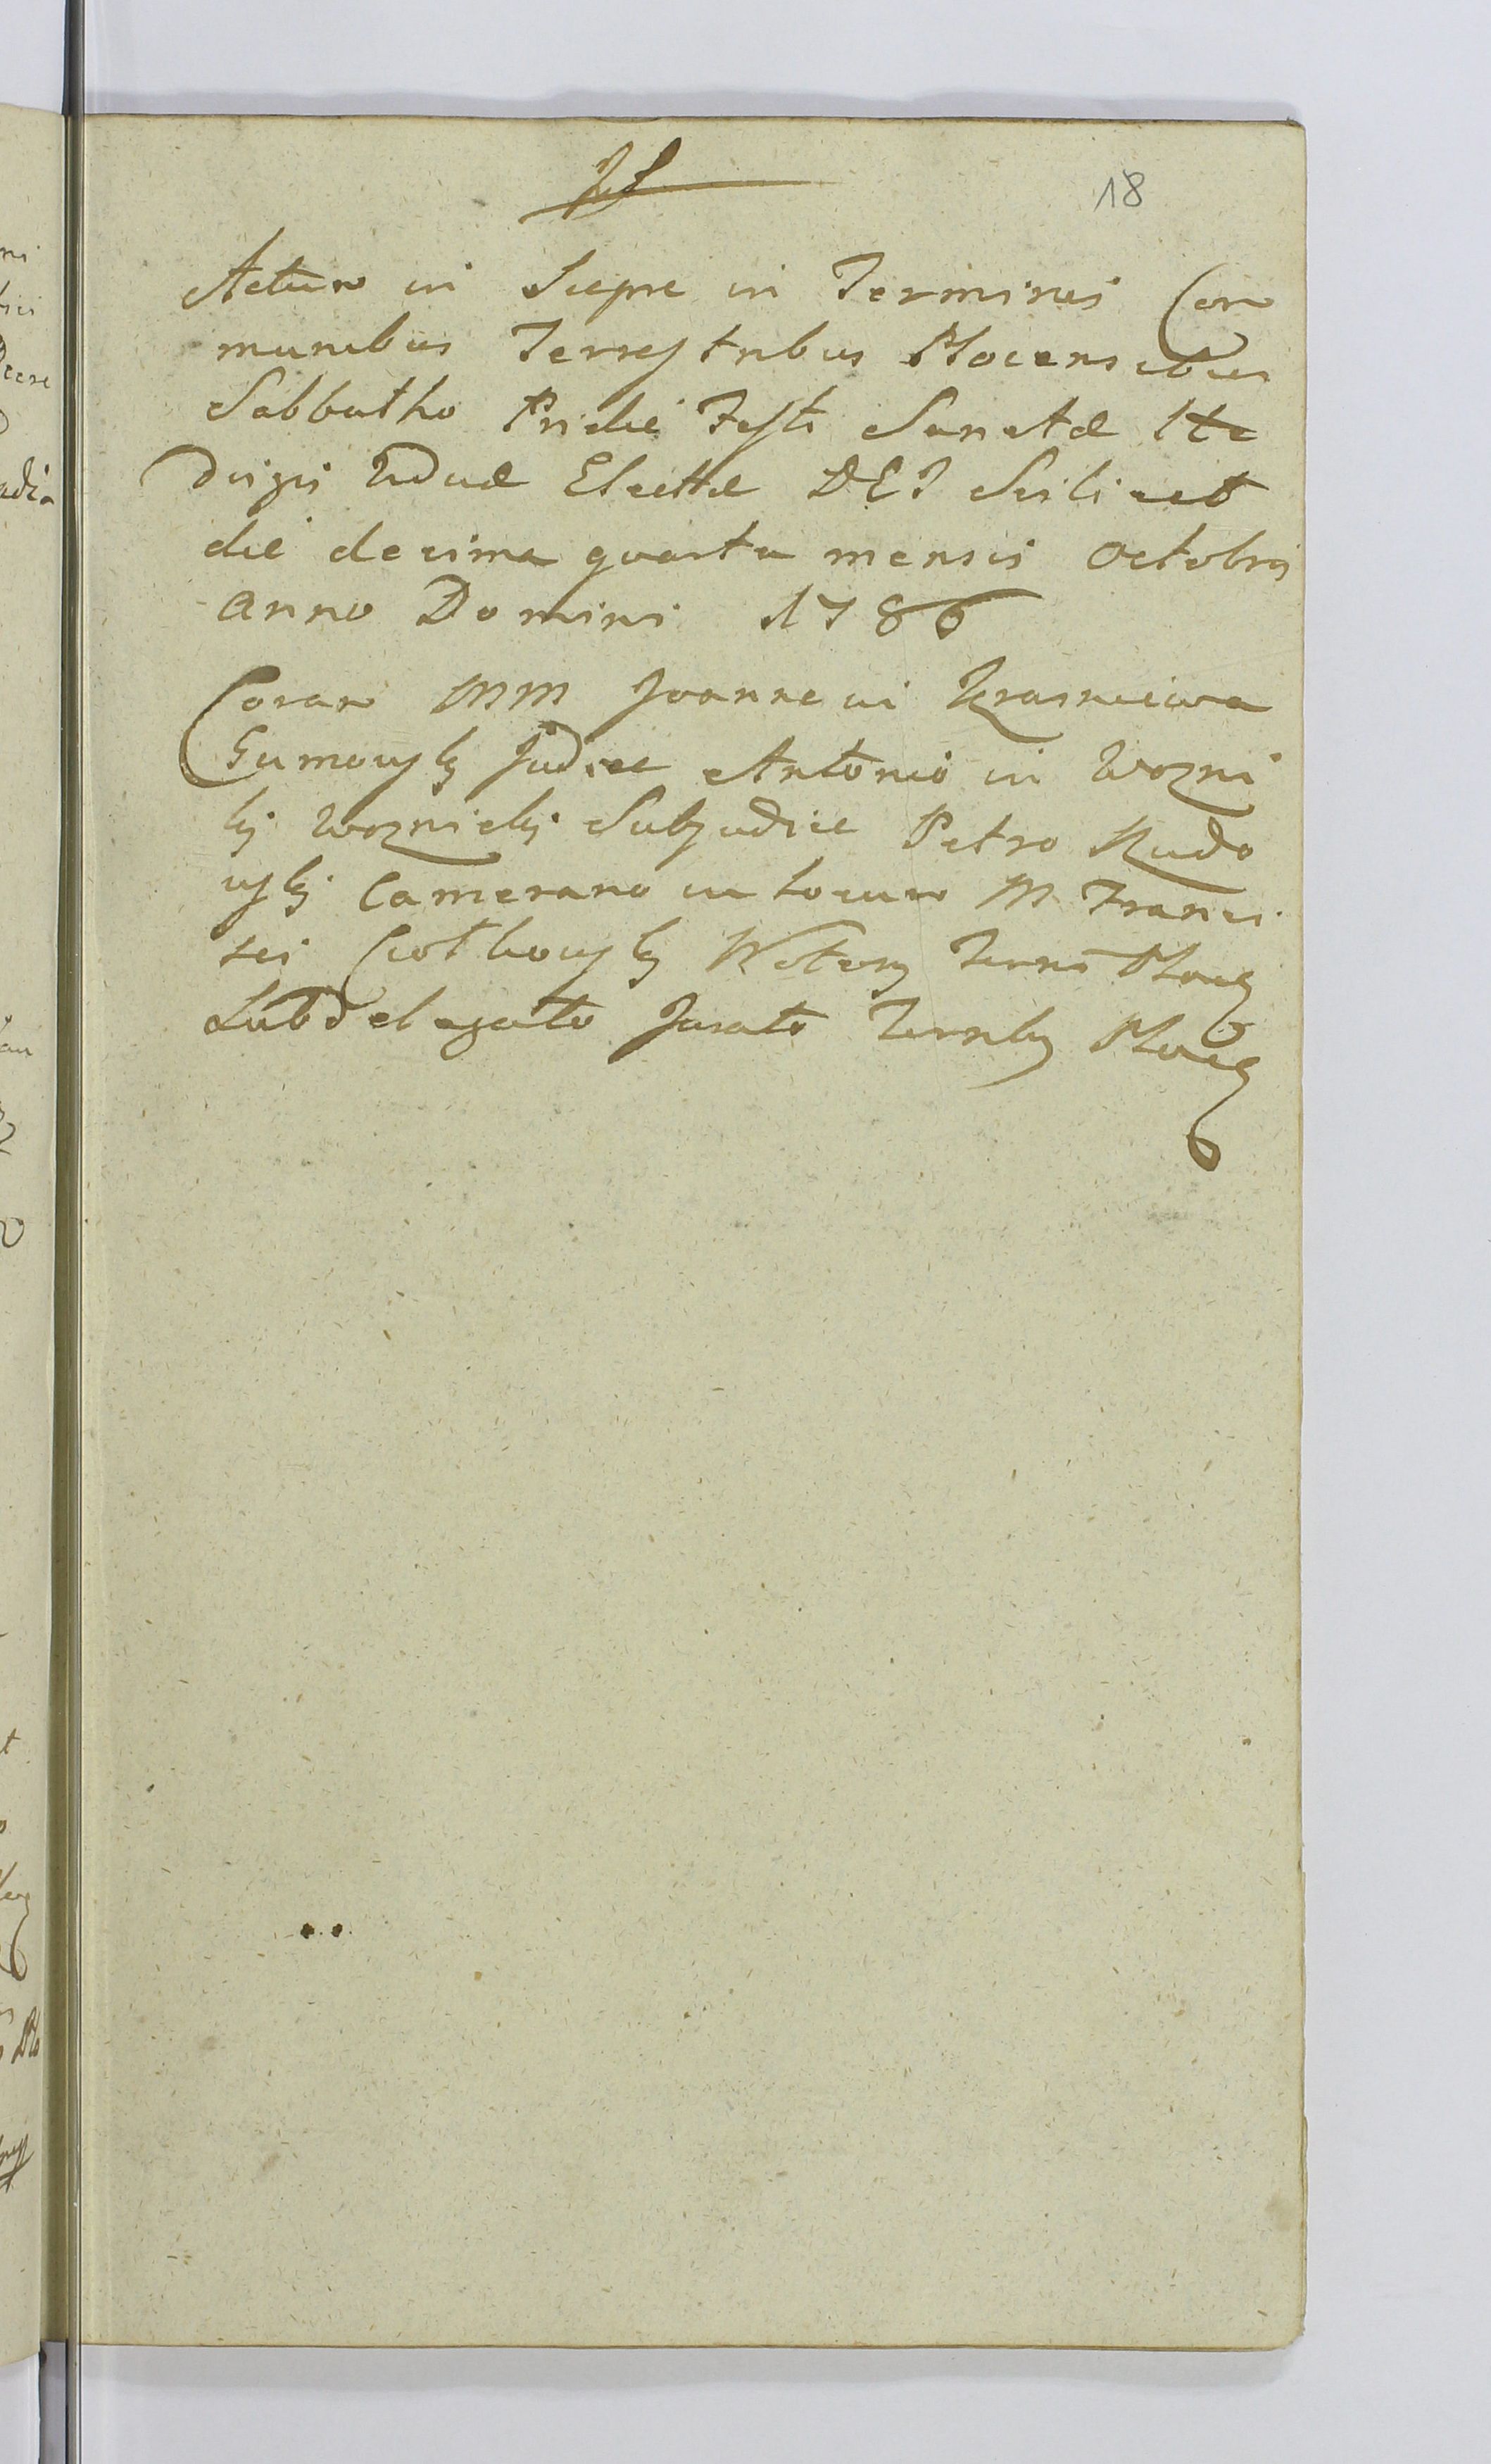 18
Actum in Siepre in Terminis Com
munibus Terrestribus Plocensibus
Sabbatho Pridie Festi Sanctæ He
dvigis Viduæ Electæ DEI Scilicet
die decima quarta mensis Octobris
Anno Domini 1786
Coram MM Joanne in Krasniewa
Gumowsky Judice Antonio in Wozni
ki Woznicki Subjudice Petro Rudo
wski Camerario in locum M. Franci
sci Ciothowsky Notary Terris Plocs
Subdelegato Jurato Terrlis Plocs